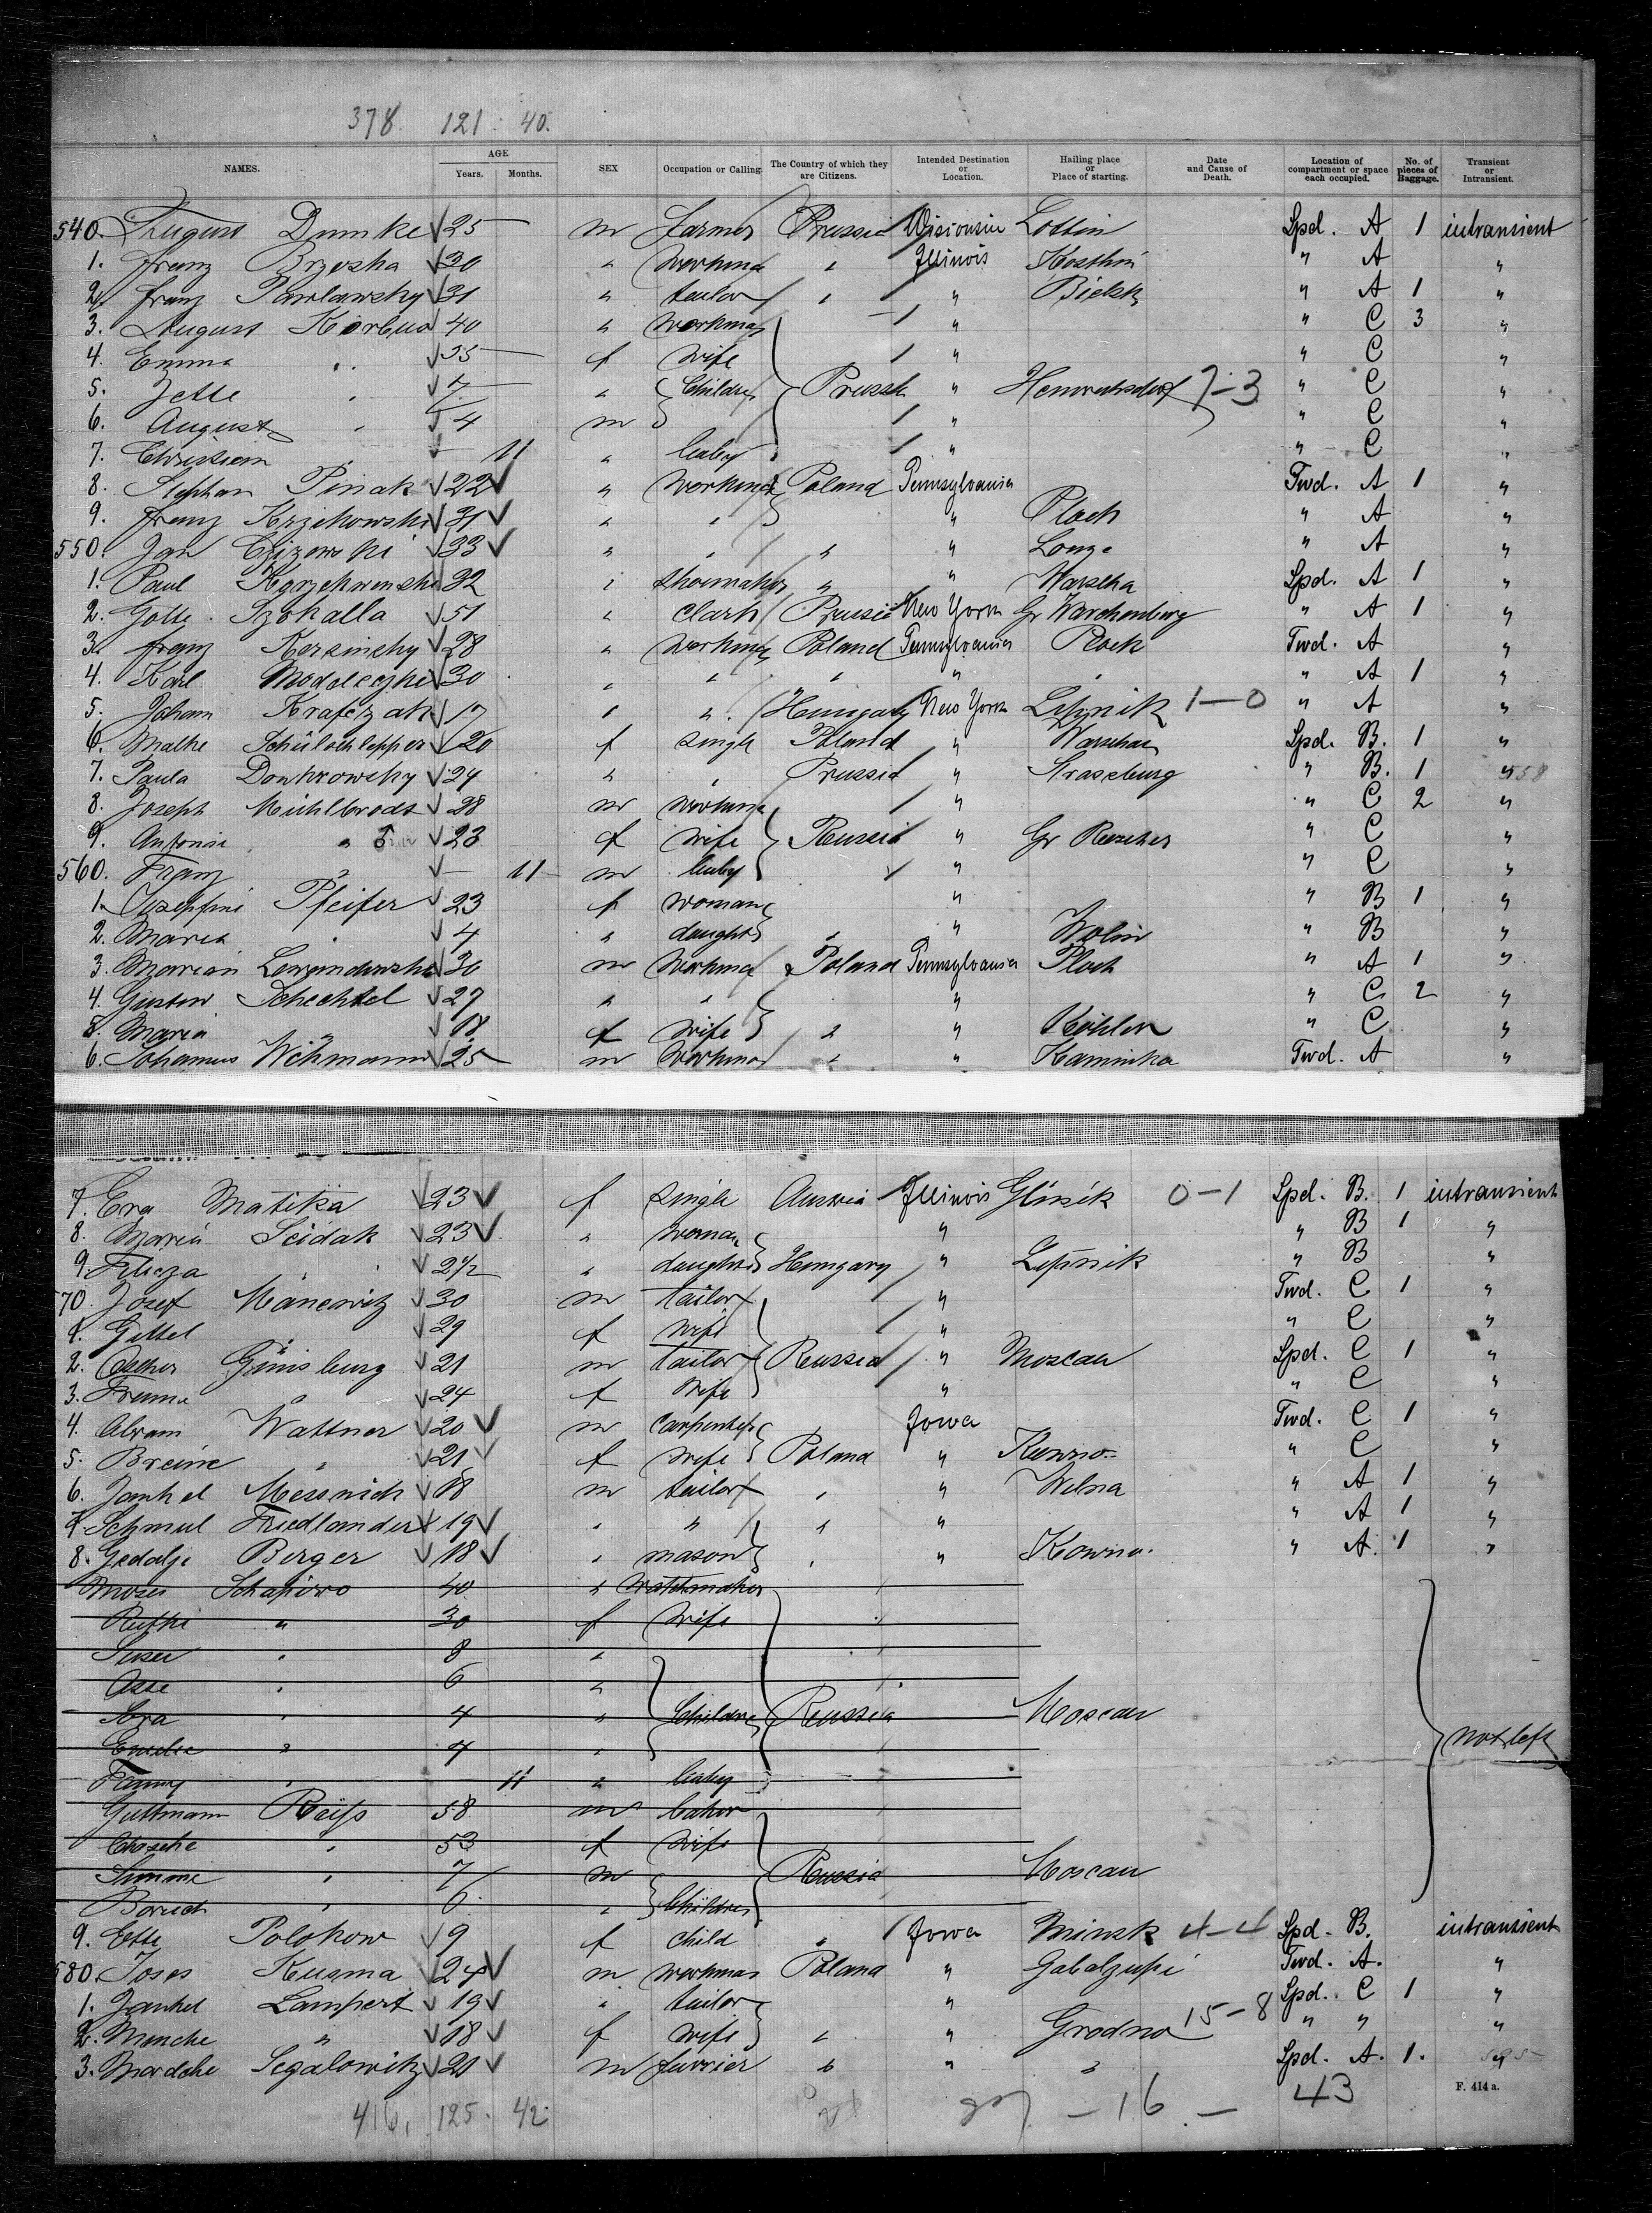 378. 121. 40.
NAMES. AGE Years. Months. SEX Occupation or Calling. The Country of which they are Citizens. Intended Destination or Location. Hailing place or Place of starting. Date and Cause of Death. Location of compartment or space each occupied. No. of pieces of Baggage. Transient or Intransient.
540. August Dumke 25 m farmer Prussia Wisconsin Lottin Spd. A 1 intransient
1. Franz Brzeska 30 " workman " Illinois Kosthin " A "
2. Franz Pawlawsky 31 " tailor " " Bielsk " A 1 "
3. August 40 " workman " " C 3 "
4. Emma " 35 f wife " " C "
5. Jette " 7 " Children Prussia " 7-3 " C "
6. August " 4 m " " C "
7. Christian " 11 " baby " " C "
8. Stephan Pinak 22 " workman Poland Pennsylvania Twd. A 1 "
9. Franz Krzikowski 31 " " " Plock " A "
550. Jan 33 " " " " " A "
1. Paul 32 " shoemaker " " Warscha Spd. A 1 "
2. Gottl. Szokalla 51 " Clark Prussia New York Gr Warchenberg " A 1 "
3. Franz Korsinsky 28 " workman Poland Pennsylvania Plock Twd. A "
4. Karl 30 " " " " " " A 1 "
5. Johann Krafczak 17 " " Hungary New York Lipnik 1-0 " A "
6. Malke Schülschlepper 20 f single Poland " Warschau Spd. B. 1 "
7. Paula Donkrowsky 24 " " Prussia " Straszburg " B. 1 " 558
8. Joseph Mühlbrodt 28 m workman " " C 2 "
9. Antonie " 23 f wife Russia " Gr " C "
560. Franz " 11 m baby " " C "
1. Josephine Pfeifer 23 f woman " " B 1 "
2. Maria " 4 " daughter " " Wolin " B "
3. Marian Lewandowski 30 m workman Poland Pennsylvania Plock " A 1 "
4. Gustav Schechtel 27 " " " " C 2 "
5. Maria " 18 f wife " " Köhler " C "
6. Johannes Wihmann 25 m workman " " Kaminka Twd. A "
7. Eva Matika 23 f single Austria Illinois Glinik 0-1 Spd. B. 1 intransient
8. Maria Scidak 23 " woman " " B 1 "
9. " 2 1/2 " daughter Hungary " Lipnik " B "
570. Josef Manewitz 30 m tailor " Twd. C 1 "
1. Gittel " 29 f wife " " C "
2. Ascher Günsburg 21 m tailor Russia " Moscau Spd. C 1 "
3. Fruma " 24 f wife " " C "
4. Abram Wattner 20 m carpenter Iowa Twd. C 1 "
5. Breine " 21 f wife Poland " Kowno " C "
6. Jankel Messnick 18 m tailor " " Wilna " A 1 "
7. Schmul Friedlander 19 " " " " " A 1 "
8. Gedalje Berger 18 " mason " " Kowno. " A. 1 "
Moses Schapiro 40 " watchmaker
Ruthe " 30 f wife
" 8 "
Asse " 6 "
" 4 " Children Russia Moscau
" 4 " not left
Fanny " 11 " baby
Guttmann Reiss 58 m baker
" 53 f wife
Simme " 7 m Russia Moscau
Boruch " 6 " Children
9. Ette Polokow 9 f child " Iowa Minsk 4-4 Spd. B. intransient
580. Joses Kusma 24 m workman Poland " Twd. A. "
1. Jankel Lampert 19 " tailor " Spd. C 1 "
2. Menche " 18 f wife " " Grodno 15-8 " " "
3. Mordche Segalowitz 21 m furrier " " " Spd. A. 1. "
416, 125. 42. - 16 - 43 F. 414 a.